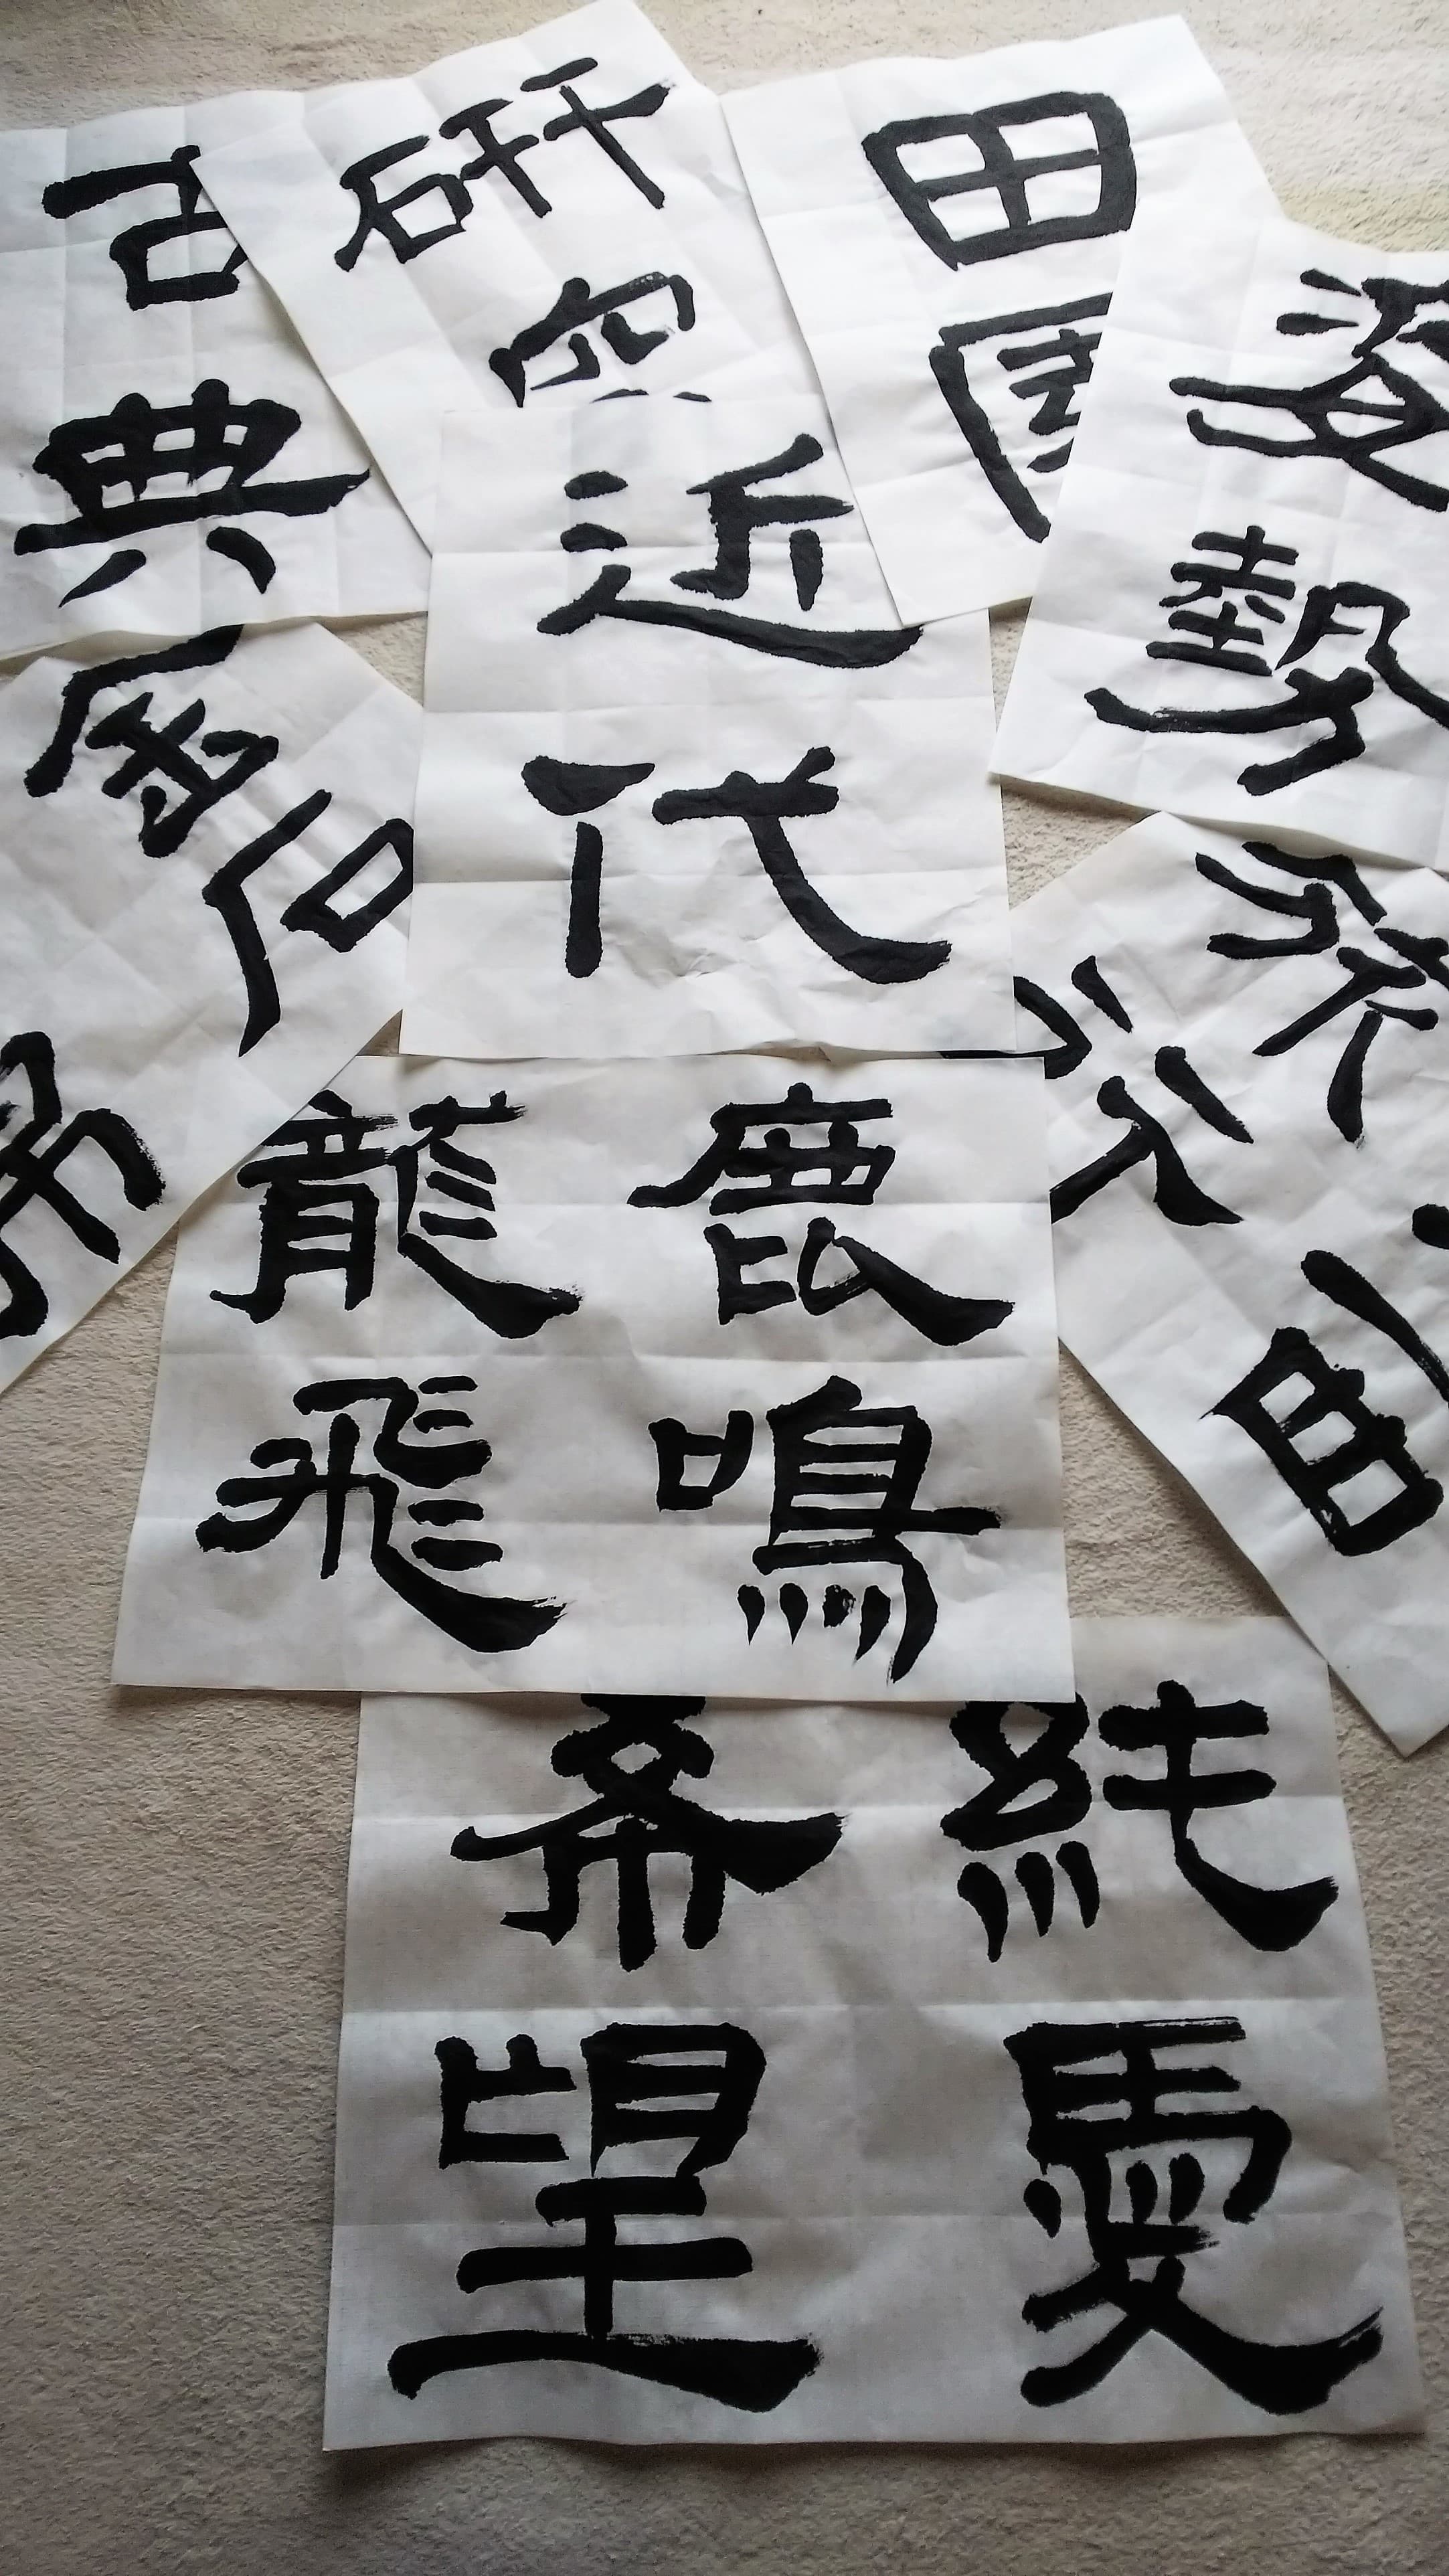 古典
研究
田園
姿勢
近代
金石
鹿鳴
龍飛
純愛
希望